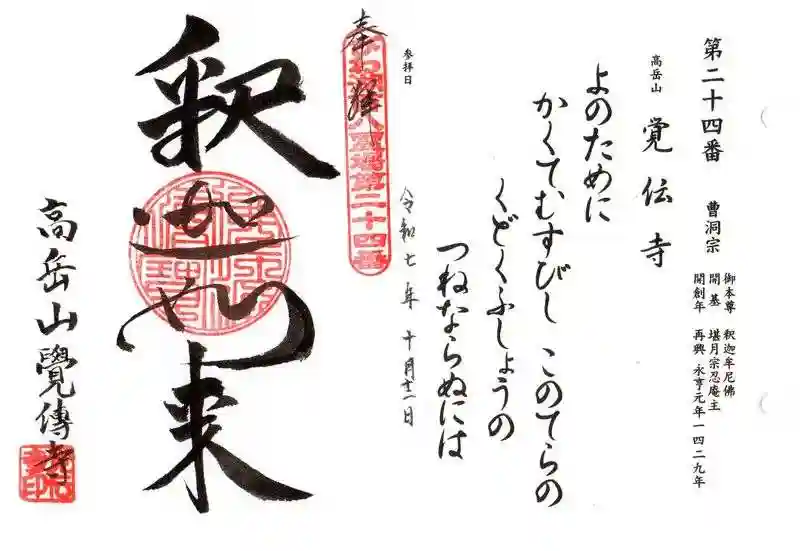 第二十四番
曹洞宗
御本尊 釈迦牟尼佛
開基 堪月宗忍庵主
開創年 再興 永享元年一四二九年
高岳山 覚伝寺
よのために
かくてむすびし このてらの
くどくふしょうの
つねならぬには
参拝日
令和七年 十月十二日
奉拝
霊場第二十四番
釈迦如来
高岳山覺傳寺